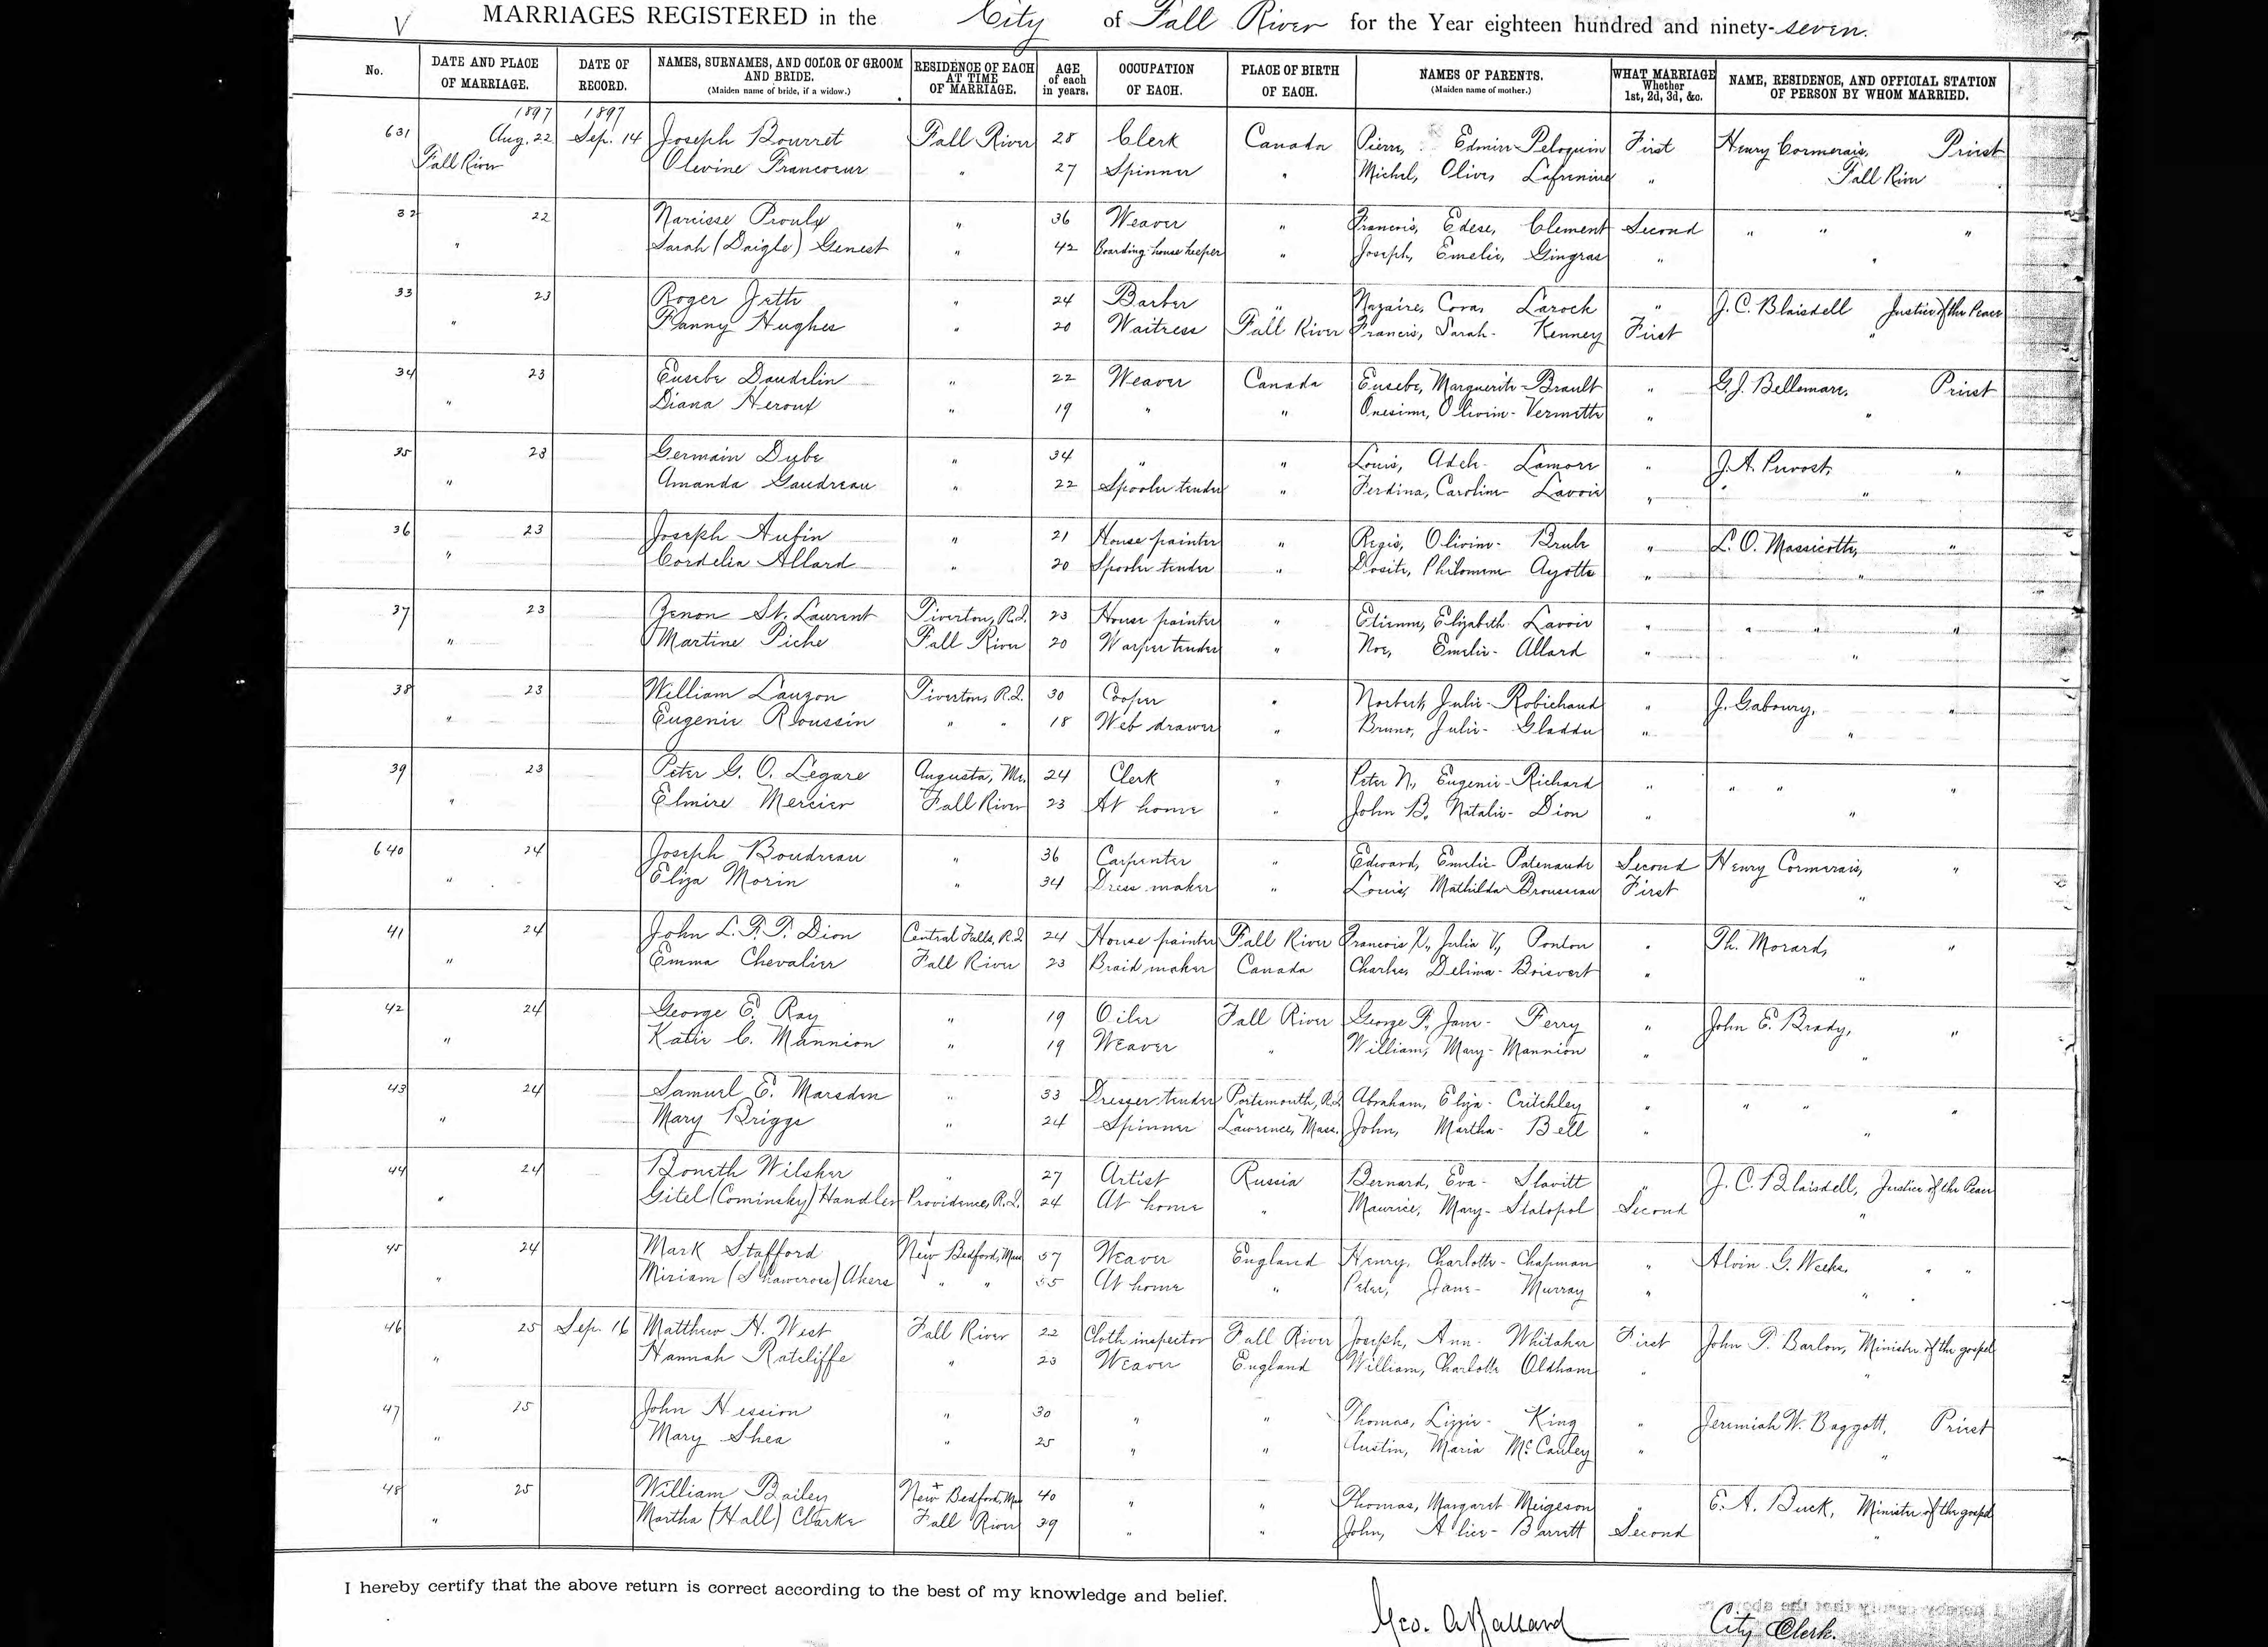 V MARRIAGES REGISTERED in the City of Fall River for the Year eighteen hundred and ninety-seven.
No. DATE AND PLACE OF MARRIAGE. DATE OF RECORD. NAMES, SURNAMES, AND COLOR OF GROOM AND BRIDE. (Maiden name of bride, if a widow.) RESIDENCE OF EACH AT TIME OF MARRIAGE. AGE of each in years. OCCUPATION OF EACH. PLACE OF BIRTH OF EACH. NAMES OF PARENTS. (Maiden name of mother.) WHAT MARRIAGE Whether 1st, 2d, 3d, &c. NAME, RESIDENCE, AND OFFICIAL STATION OF PERSON BY WHOM MARRIED.
1897 1897
631 Aug. 22 Sep. 14 Joseph Bourret Fall River 28 Clerk Canada Pierre, Edmire Peloquin First Henry Cormerais, Priest
Fall River Olevine Francoeur " 27 Spinner " Michel, Olive, Lafreniere " Fall River
32 22 Narcisse Proulx " 36 Weaver " Francois, Edese, Clement Second " " "
" Sarah (Daigle) Genest " 42 Boarding house keeper " Joseph, Emelie, Gingras " "
33 23 Roger Jette " 24 Barber " Nazaire, Cora, Laroch " J. C. Blaisdell Justice of the Peace
" Fanny Hughes " 20 Waitress Fall River Francis, Sarah- Kenney First "
34 23 Eusebe Daudelin " 22 Weaver Canada Eusebe, Marguerite-Brault " G. J. Bellemare, Priest
" Diana Heroux " 19 " " Onesime, Olivine- Vermette " "
35 23 Germain Dube " 34 " " Louis, Adel- Lamore " J. A. Prevost, "
" Amanda Gaudreau " 22 Spooler tender " Ferdina, Caroline- Lavoie " "
36 23 Joseph Aubin " 21 House painter " Regis, Olivine- Brule " L. O. Massicotte, "
" Cordelia Allard " 20 Spooler tender " Dosite, Philomene Ayotte " "
37 23 Zenon St. Laurent Tiverton, R.I. 23 House painter " Etienne, Elizabeth Lavoie " " " "
" Martine Piche Fall River 20 Warper tender " Noe, Emelie- Allard " "
38 23 William Lauzon Tiverton, R.I. 30 Cooper " Norbert, Julie-Robichaud " J. Gaboury, "
" Eugenie Roussin " " 18 Web drawer " Bruno, Julie- Gladdu " "
39 23 Peter G. O. Legare Augusta, Me. 24 Clerk " Peter N., Eugenie-Richard " " " "
" Elmire Mercier Fall River 23 At home " John B. Natalie- Dion " "
640 24 Joseph Boudreau " 36 Carpenter " Edward, Emelie- Patenaude Second Henry Cormerais, "
" Eliza Morin " 34 Dress maker " Louis, Mathilda Brousseau First "
41 24 John L. F. T. Dion Central Falls, R.I. 24 House painter Fall River Francois X., Julia V., Ponton " Th. Morard, "
" Emma Chevalier Fall River 23 Braid maker Canada Charles, Delima- Boisvert " "
42 24 George E. Ray " 19 Oiler Fall River George F., Jane- Ferry " John E. Brady, "
" Katie C. Mannion " 19 Weaver " William, Mary- Mannion " "
43 24 Samuel E. Marsden " 33 Dresser tender Portsmouth, R.I. Abraham, Eliza- Critchley " " " "
" Mary Briggs " 24 Spinner Lawrence, Mass. John, Martha- Bell " "
44 24 Boneth Wilsker " 27 Artist Russia Bernard, Eva- Slavitt " J. C. Blaisdell, Justice of the Peace
" Gitel (Cominsky) Handler Providence, R.I. 24 At home " Maurice, Mary- Slatopol Second "
45 24 Mark Stafford New Bedford, Mass 57 Weaver England Henry, Charlotte- Chapman " Alvin G. Weeks, " "
" Miriam (Shawcross) Akers " " 55 At home " Peter, Jane- Murray " "
46 25 Sep. 16 Matthew H. West Fall River 22 Cloth inspector Fall River Joseph, Ann- Whitaker First John P. Barlow, Minister of the gospel
" Hannah Ratcliffe " 23 Weaver England William, Charlotte Oldham " "
47 25 John Hession " 30 " " Thomas, Lizzie- King " Jeremiah W. Baggott, Priest
" Mary Shea " 25 " " Austin, Maria McCauley " "
48 25 William Bailey New Bedford, Mass 40 " " Thomas, Margaret Meigeson " E. A. Buck, Minister of the gospel
" Martha (Hall) Clarke Fall River 39 " " John, Alice- Barrett Second "
I hereby certify that the above return is correct according to the best of my knowledge and belief.
Geo. A. Ballard City Clerk.